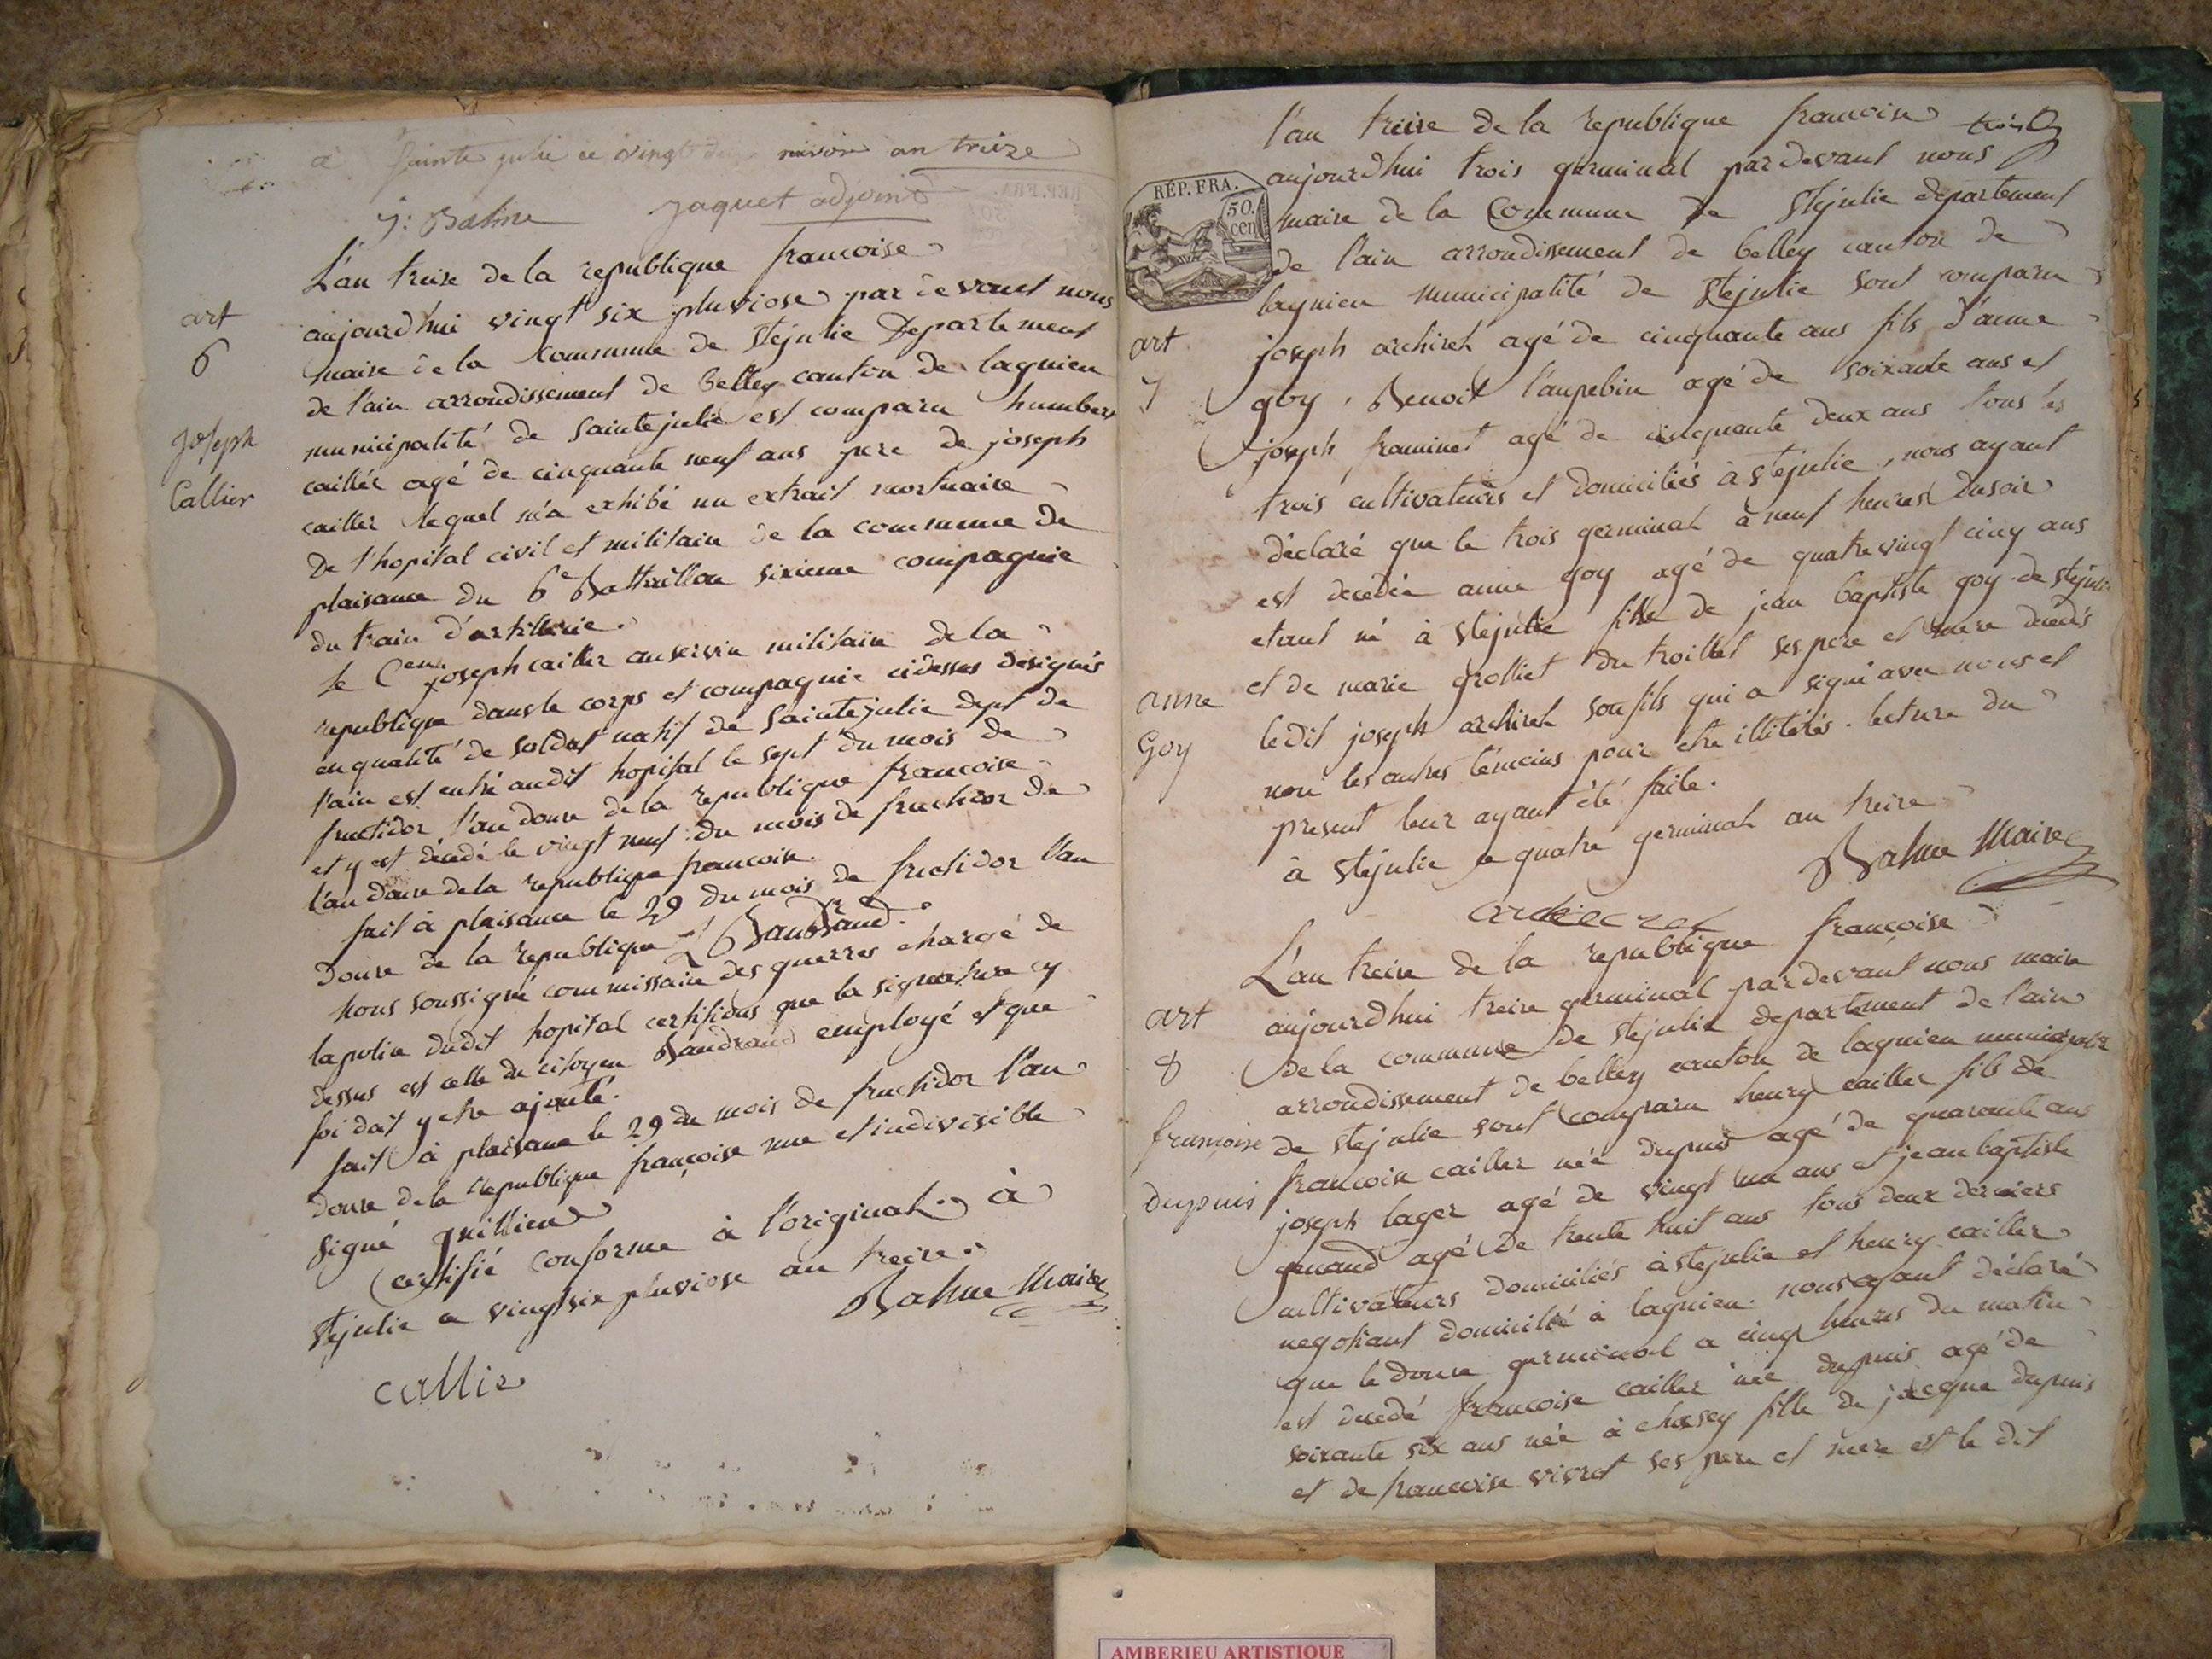 a Sainte julie ce vingt nivose an treize
J: Balme Jaquet adjoint
L'an treize de la republique francoise
art
6
Joseph
Callier
aujourd'hui vingt six pluviose par devant nous
maire de la commune de Stejulie Departement
de l'ain arrondissement de Belley canton de lagnieu
municipalité de Saintejulie est comparu humbert
caillér agé de cinquante neuf ans pere de joseph
cailler lequel m'a exhibé un extrait mortuaire
De l'hopital civil et militaire de la commune de
plaisance du 6e Battaillon sixieme compagnie
du train d'artillerie.
le Cen joseph cailler au service militaire de la
republique dans le corps et compagnie cidessus designés
en qualité de soldat natif de Saintejulie dept de
l'ain est entré audit hopital le sept du mois de
fructidor l'an douze de la republique francoise
et y est décédé le vingt neuf du mois de fructidor de
l'an douze de la republique francoise.
fait à plaisance le 29 du mois de fructidor l'an
douze de la republique Baudrand.
nous soussigné commissaire des guerres chargé de
la police dudit hopital certifions que la signature cy
dessus est celle du citoyen Baudrand employé et que
foi doit y etre ajouté.
fait à plaisance le 29 du mois de fructidor l'an
douze de la republique françoise une et indivisible
signé quillien
Certifié conforme à l'original. à
stejulie ce vingt six pluviose an treize.
Balme Maire
callier
l'an treize de la republique francoise
aujourdhui trois germinal pardevant nous
RÉP. FRA.
50.
cen
maire de la Commune de Stejulie departement
de l'ain arrondissement de belley canton de
lagnieu municipalité de Stejulie sont comparu
art
7
joseph archiret agé de cinquante ans fils d'anne
goy, Benoit laupebin agé de soixante ans et
joseph framinet agé de cinquante deux ans tous les
trois cultivateurs et domiciliés à stejulie, nous ayant
déclaré que le trois germinal à neuf heures du soir
est decedée anne goy agé de quatre vingt cinq ans
etant né à stejulie fille de jean baptiste goy de stejulie
anne
Goy
et de marie grolliet du troillet ses pere et mere decedés
ledit joseph archiret son fils qui a signé avec nous et
non les autres témoins pour etre illitérés. lecture du
present leur ayant été faite.
à Stejulie ce quatre germinal an treize
Balme Maire
archieret
L'an treize de la republique françoise
art
8
aujourdhui treize germinal pardevant nous maire
de la commune de stejulie departement de l'ain
arrondissement de belley canton de lagnieu municipalité
francoise
dupuis
de stejulie sont comparu henry cailler fils de
francoise cailler née dupuis agé de quarante ans
joseph lager agé de vingt un ans et jean baptiste
genand agé de trente huit ans tous deux derniers
cultivateurs domiciliés à stejulie et henry cailler
negotiant domicilié à lagnieu. nous ayant déclaré
que le douze germinal a cinq heures du matin
est decedé francoise cailler née dupuis agé de
soixante six ans née à chasey fille de jacque dupuis
et de francoise vivret ses pere et mere et le dit
AMBERIEU ARTISTIQUE